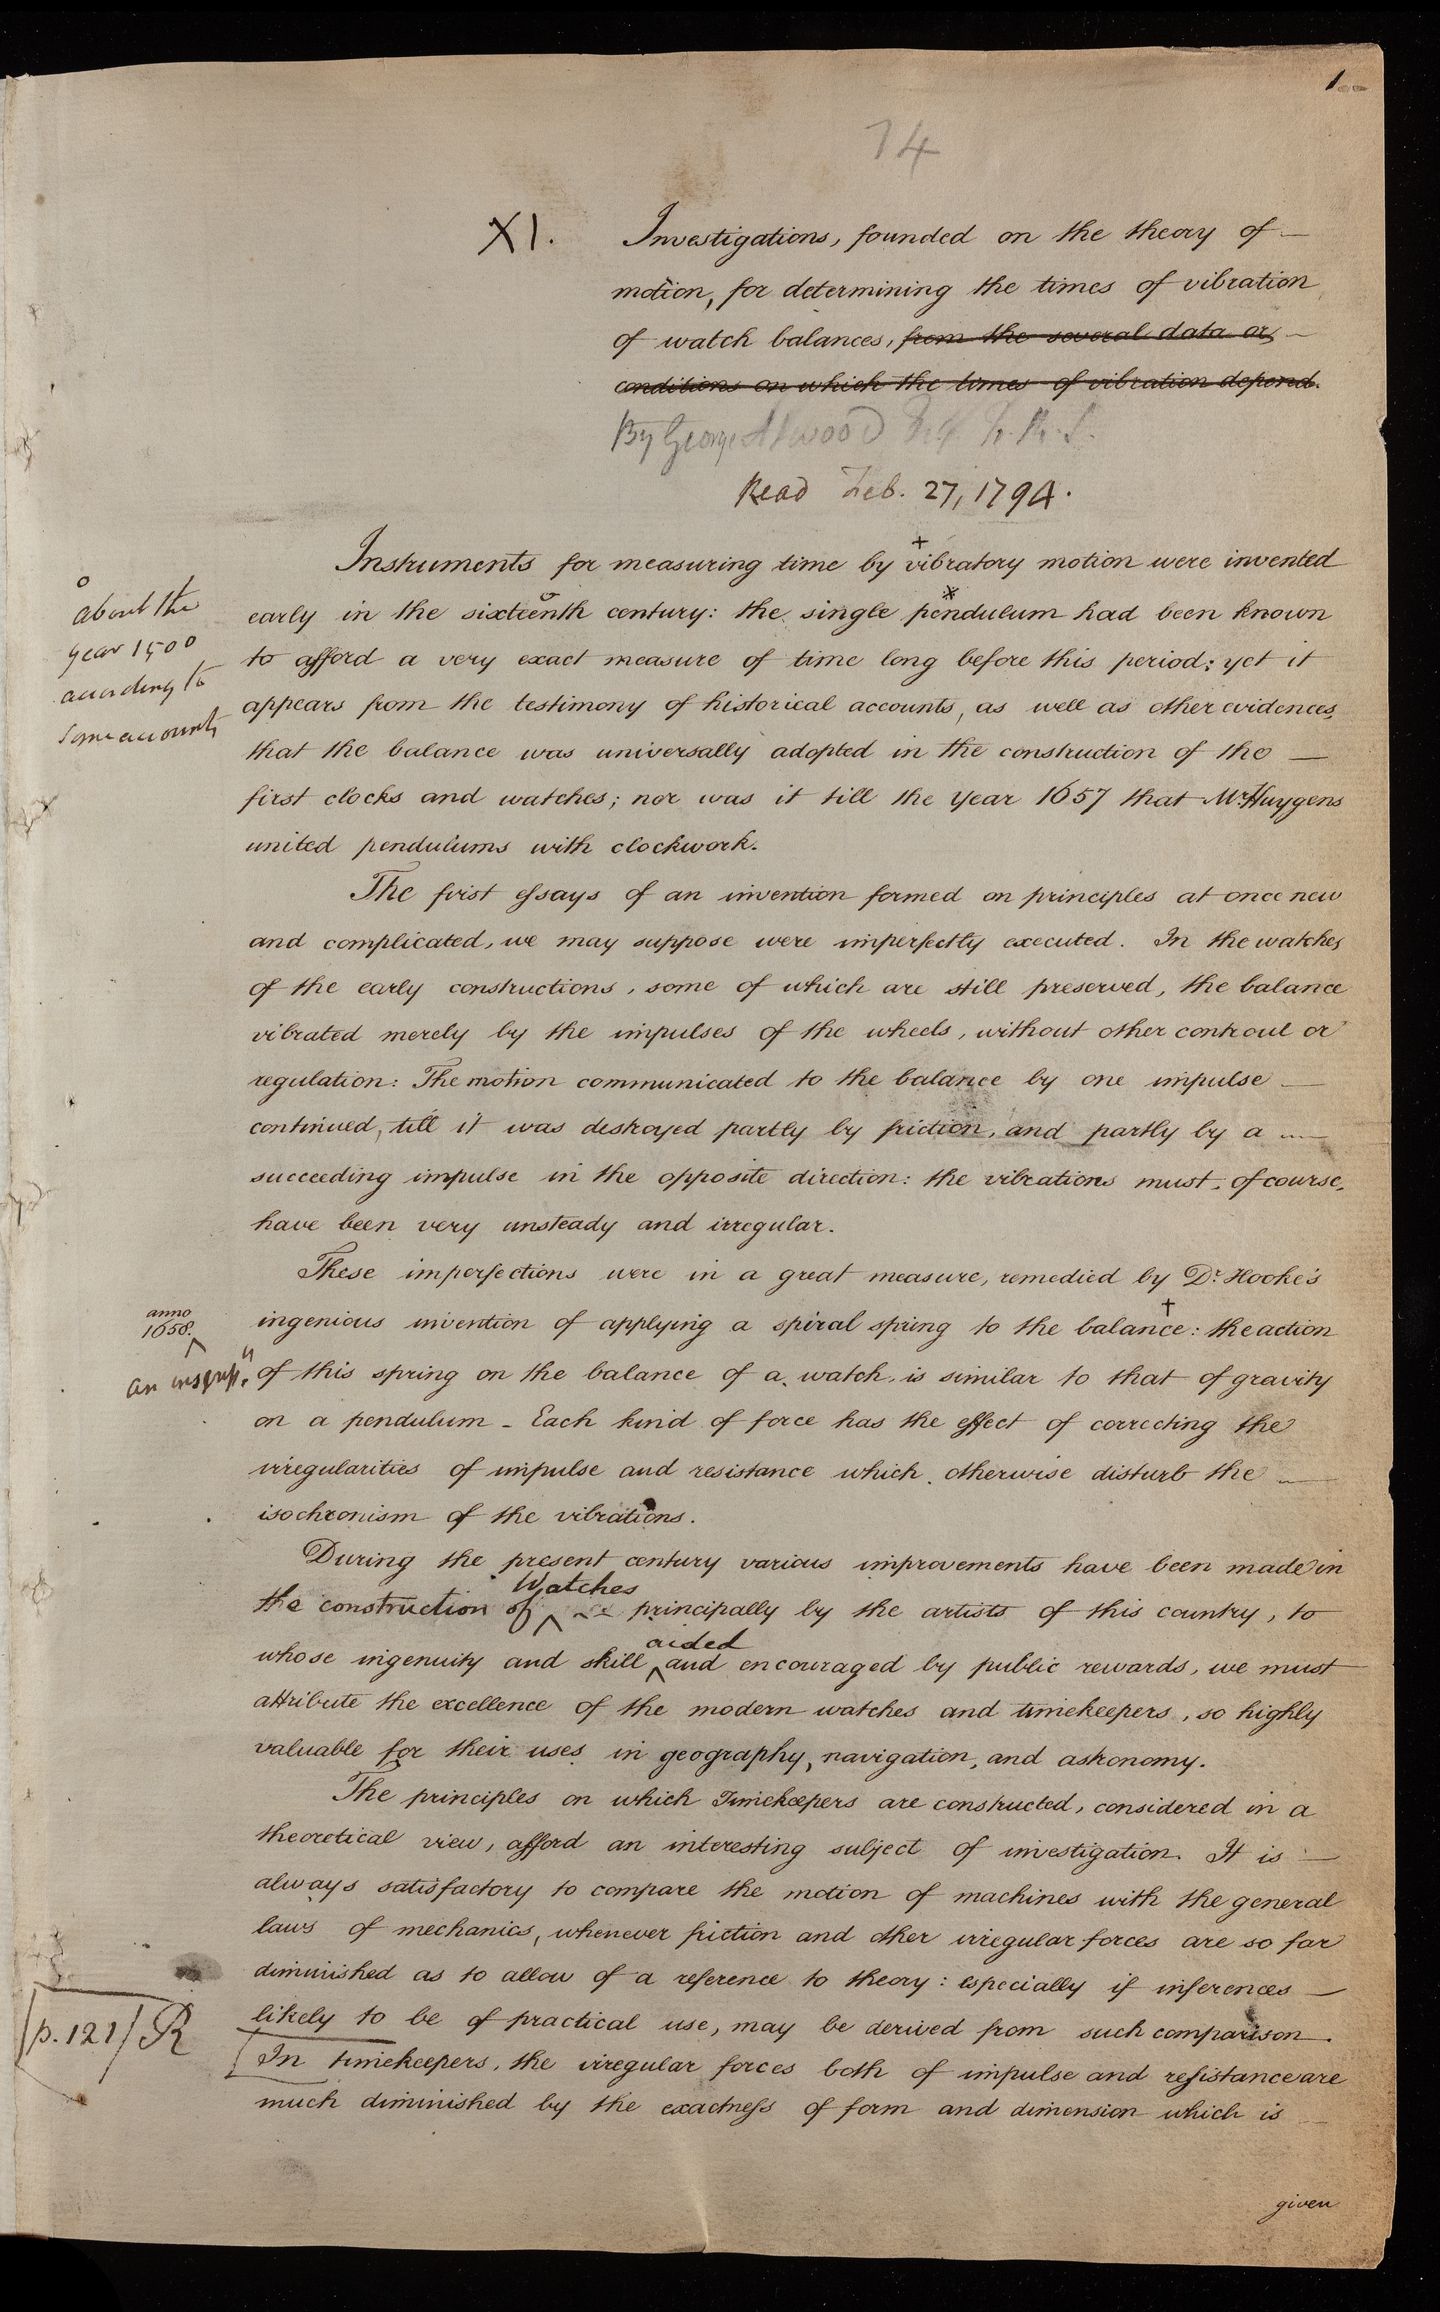 1
14
XI.
Investigations, founded on the theory of —
motion, for determining the times of vibration
of watch balances, from the several data or —
conditions on which the times of vibration depend.
By George Atwood F. R. S.
Read Feb. 27, 1794.
Instruments for measuring time by + vibratory motion were invented
o
about the
year 1500
according to
some accounts
early in the sixteenth o century: the single * pendulum had been known
to afford a very exact measure of time long before this period; yet it
appears from the testimony of historical accounts, as well as other evidences,
that the balance was universally adopted in the construction of the —
first clocks and watches; nor was it till the year 1657 that Mr. Huygens
united pendulums with clockwork.
The first essays of an invention formed on principles at once new
and complicated, we may suppose were imperfectly executed. In the watches
of the early constructions, some of which are still preserved, the balance
vibrated merely by the impulses of the wheels, without other controul or
regulation: The motion communicated to the balance by one impulse —
continued, till it was destroyed partly by friction, and partly by a —
succeeding impulse in the opposite direction: the vibrations must, of course,
have been very unsteady and irregular.
These imperfections were in a great measure, remedied by Dr. Hooke's
anno
1658.
ingenious invention of applying a spiral spring to the balance †: the action
of this spring on the balance of a watch, is similar to that of gravity
on a pendulum – Each kind of force has the effect of correcting the
irregularities of impulse and resistance which otherwise disturb the —
isochronism of the vibrations.
During the present century various improvements have been made in
Watches
the construction of ^ principally by the artists of this country, to
aided
whose ingenuity and skill ^ and encouraged by public rewards, we must
attribute the excellence of the modern watches and timekeepers, so highly
valuable for their uses in geography, navigation, and astronomy.
The principles on which Timekeepers are constructed, considered in a
theoretical view, afford an interesting subject of investigation. It is —
always satisfactory to compare the motion of machines with the general
laws of mechanics, whenever friction and other irregular forces are so far
diminished as to allow of a reference to theory: especially if inferences —
likely to be of practical use, may be derived from such comparison.
p. 121/ R
[In timekeepers, the irregular forces both of impulse and resistance are
much diminished by the exactness of form and dimension which is
given